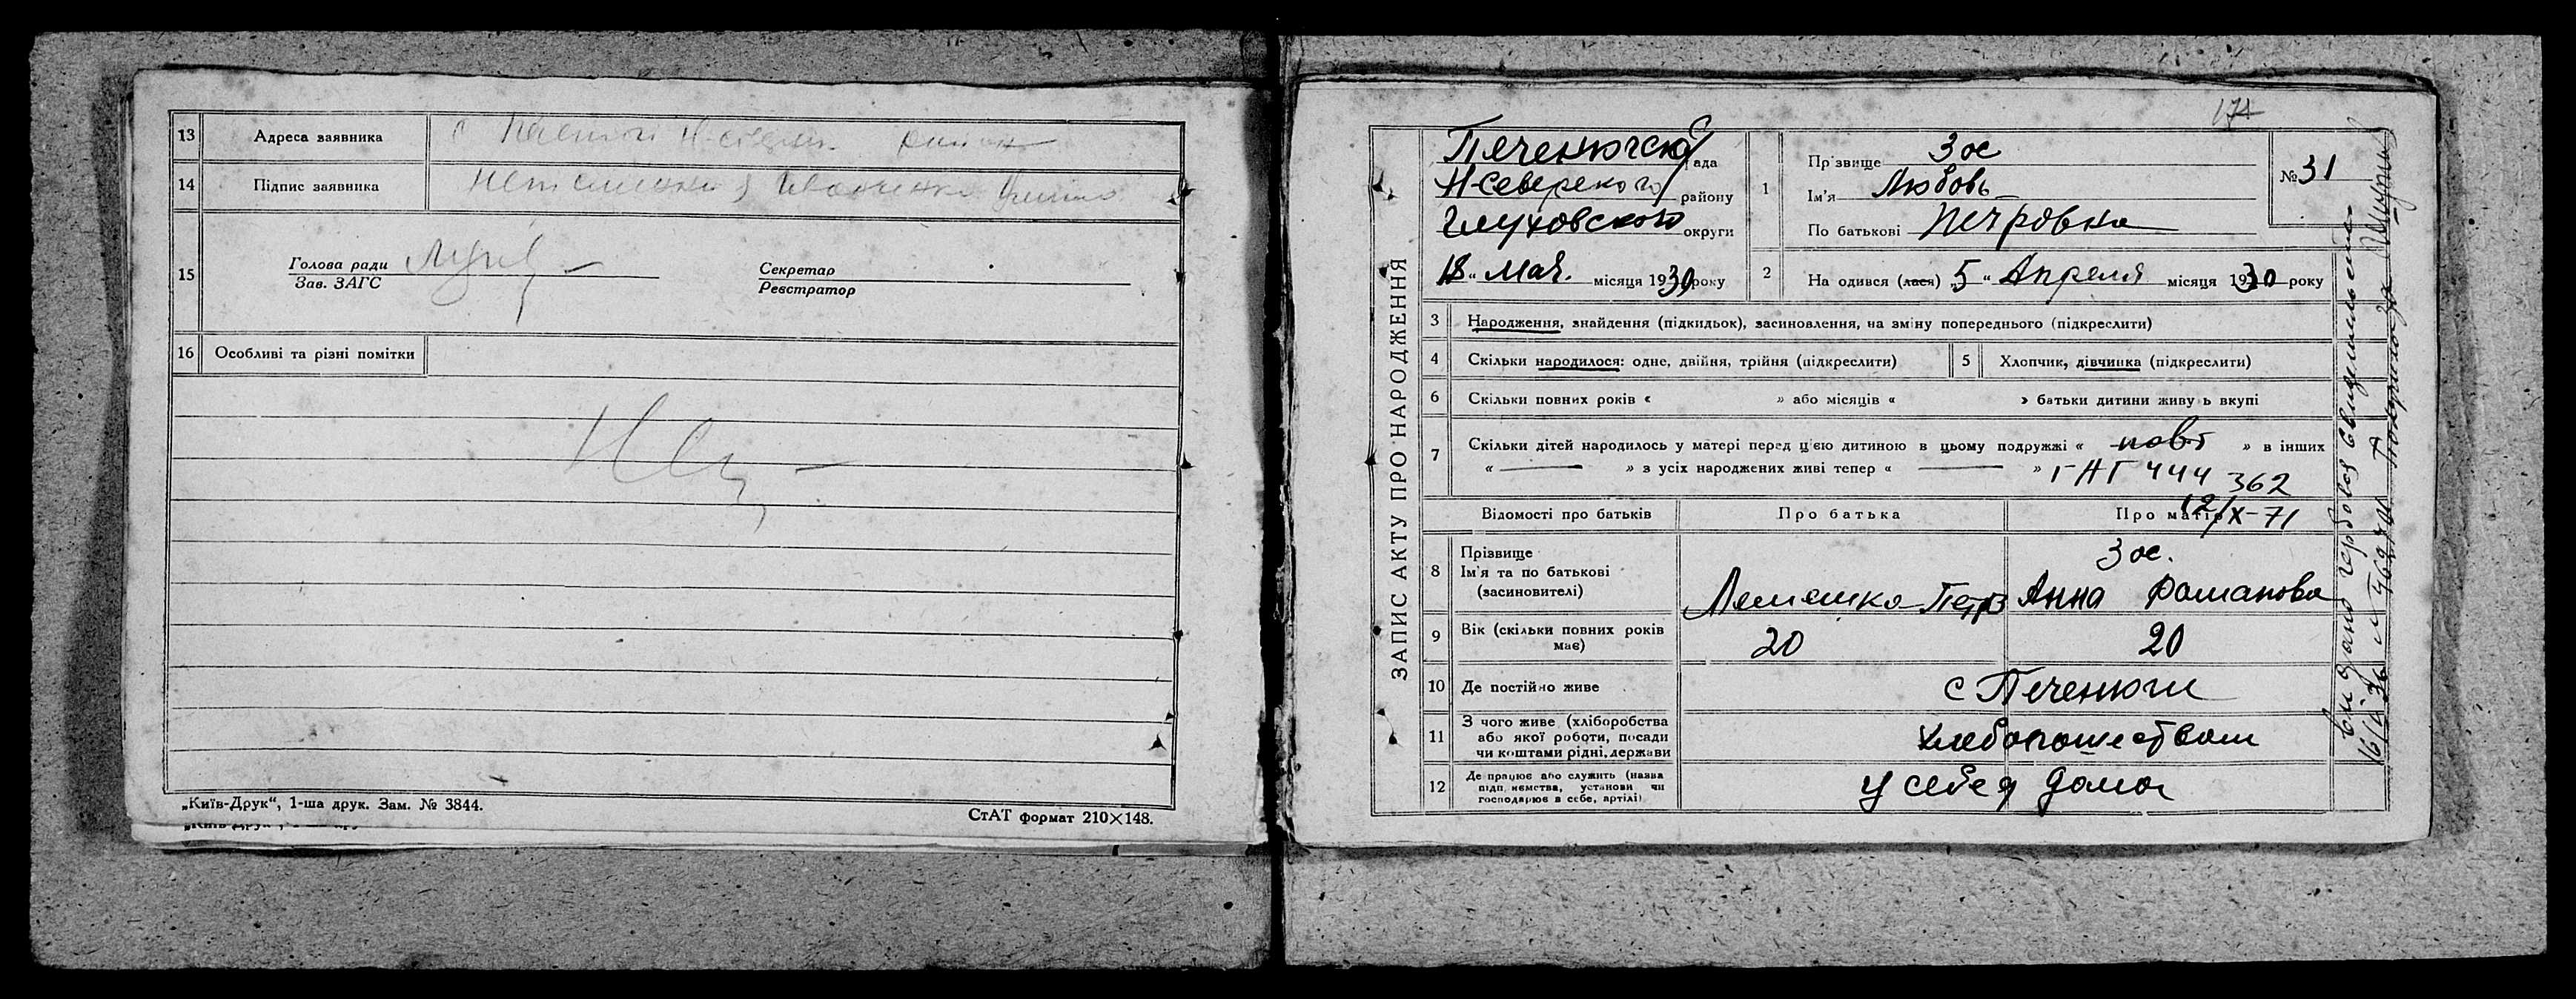 13 Адреса заявника с
14 Підпис заявника
15 Голова ради
Зав. ЗАГС
Секретар
Реєстратор
16 Особливі та різні помітки
„Київ-Друк“, 1-ша друк. Зам. № 3844.
СтАТ формат 210×148.
ЗАПИС АКТУ ПРО НАРОДЖЕННЯ
Печенюгской рада
Н-Северского району
Глуховского округи
18 „ Мая. місяця 1930 року
1 Прізвище Зос
Ім'я Любовь
По батькові Петровна
№ 31
2 На одився (лася) „5 “ Апреля місяця 1930 року
3 Народження, знайдення (підкидьок), засиновлення, на зміну попереднього (підкреслити)
4 Скільки народилося: одне, двійня, трійня (підкреслити)
5 Хлопчик, дівчинка (підкреслити)
6 Скільки повних років « » або місяців « » батьки дитини живу ь вкупі
7 Скільки дітей народилось у матері перед цією дитиною в цьому подружжі « повт » в інших
« — » з усіх народжених живі тепер « — »
ГНГ 444 362
12/X-71
Відомості про батьків Про батька Про матір
8 Прізвище
Ім'я та по батькові
(засиновителі)
Зос.
Лемешко Петр Анна Романова
9 Вік (скільки повних років має) 20 20
10 Де постійно живе с Печенюги
11 З чого живе (хліборобства
або якої роботи, посади
чи коштами рідні, держави
хлебопашеством
12 Де працює або служить (назва
підп иємства, установи чи
господарює в себе, артілі)
у себе дома